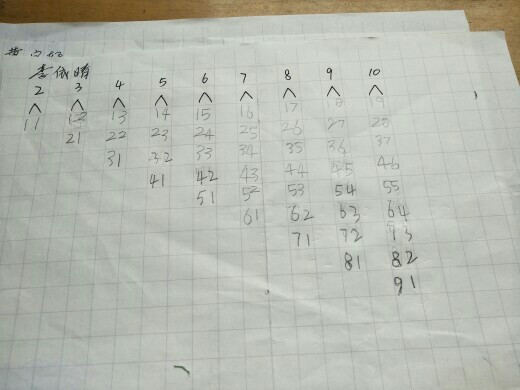 李依婧
2 3 4 5 6 7 8 9 10
11 12 13 14 15 16 17 18 19
21 22 23 24 25 26 27 28
31 32 33 34 35 36 37
41 42 43 44 45 46
51 52 53 54 55
61 62 63 64
71 72 73
81 82
91